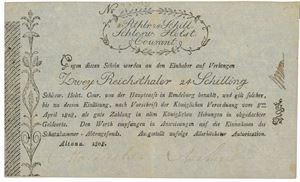 No
Rthlr. Schill.
Schlesw. Holst.
Courant
Gegen diesen Schein werden an den Einhaber auf Verlangen
Zwey Reichsthaler 24 Schilling
Schlesw. Holst. Cour. von der Hauptcasse in Rendsburg bezahlt, und gilt solcher,
bis zu dessen Einlösung, nach Vorschrift der Königlichen Verordnung vom
April 1808, als gute Zahlung in allen Königlichen Hebungen in abgedachter
Geldsorte. Den Werth empfangen in Anweisungen auf die Einnahmen des
Schatzkammer-Abtragsfonds. Ausgestellt zufolge Allerhöchster Autorisation.
Altona 1808.